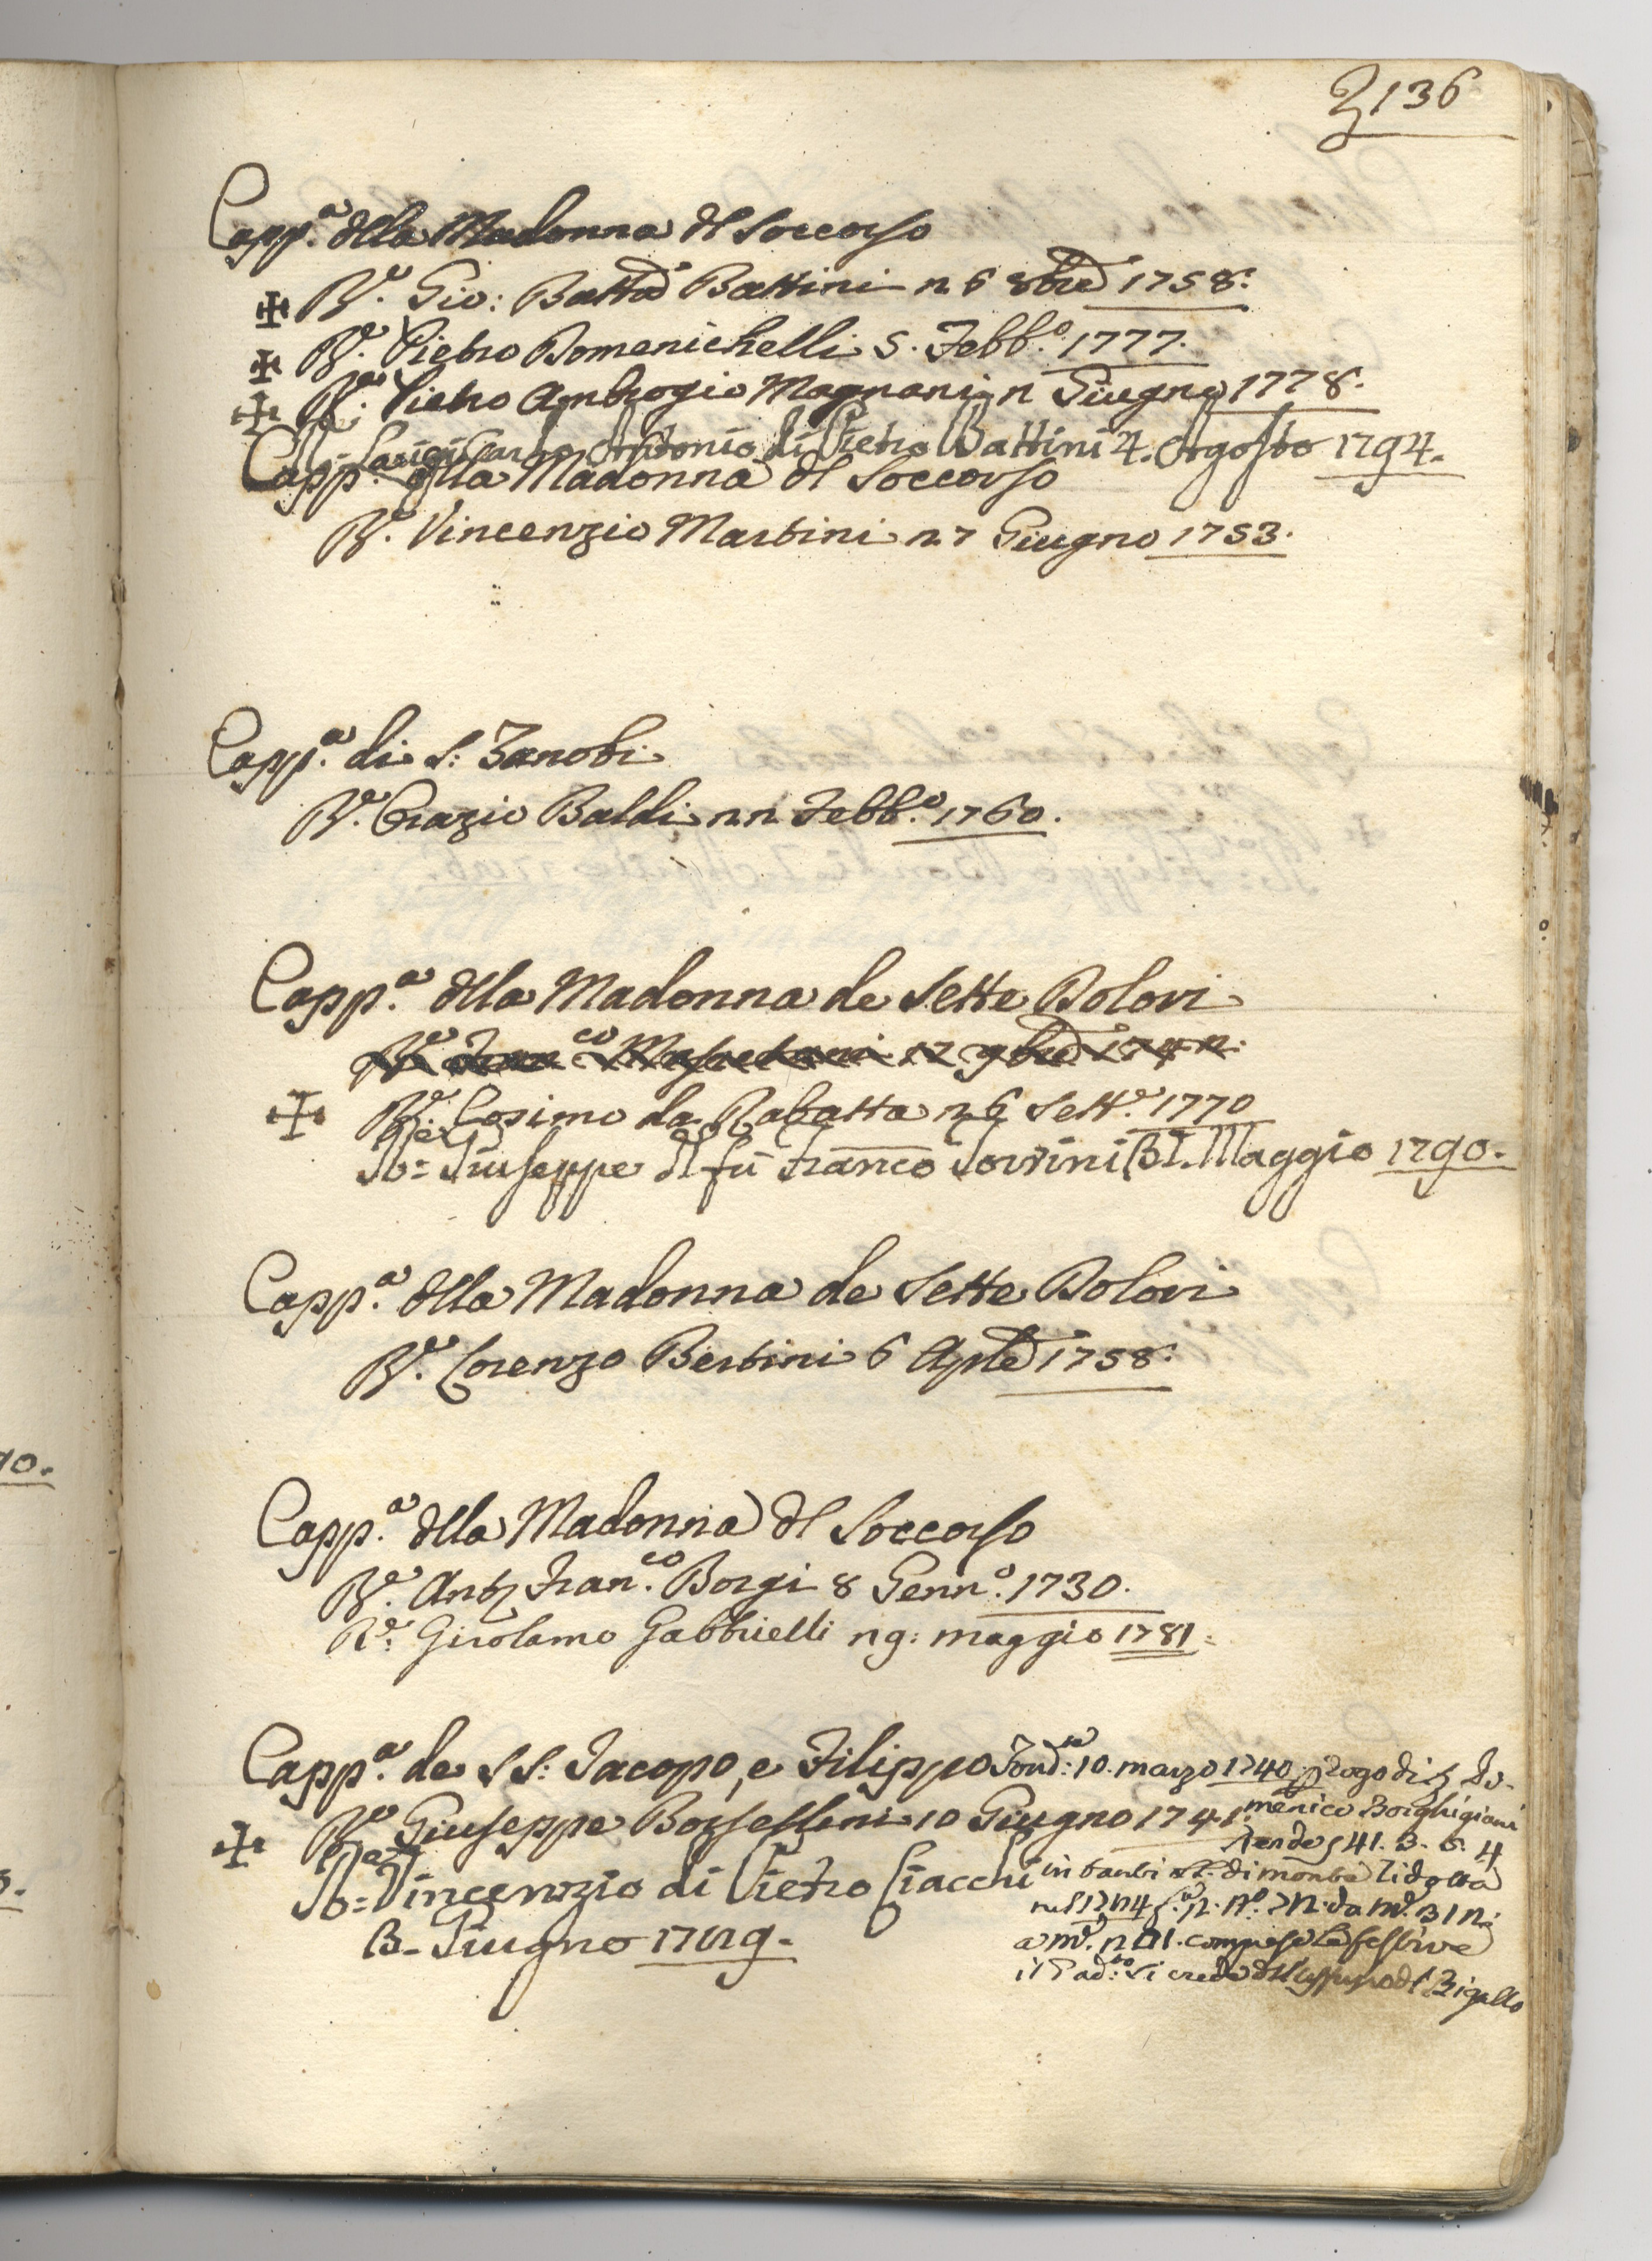 136
Capp.a della Madonna dl Soccorso
✠ R.e Gio: Batta Battini 26 8bre 1758.
✠ R.e Pietro Domenichelli 5. Febb.o 1777.
✠ R.e Pietro Ambrogio Magnani 2 Giugno 1778.
Luigi Antonio di Pietro Battini 4. Agosto 1794.
Capp.a della Madonna dl Soccorso
R.e Vincenzio Martini 27 Giugno 1753.
Capp.a di S: Zanobi
R.e Orazio Baldi 22 Febb.o 1760.
Capp.a della Madonna de Sette Dolori
✠ R.e Cosimo da Rabatta 26 Sett.e 1770
Giuseppe dl fù Franco Sorrini 31. Maggio 1790.
Capp.a della Madonna de Sette Dolori
R.e Lorenzo Bertini 6 Aple 1758.
Capp.a della Madonna dl Soccorso
R.e Ant. Fran.co Borgi 8 Genn.o 1730.
R.e Girolamo Gabbrielli 29: maggio 1781
Capp.a de SS: Jacopo, e Filippo Fond.ta: 10. marzo 1740. rogo di Do-
menico Borghigiani
✠ R.e Giuseppe Borsellini 10 Giugno 1741.
rende 41. 3. 6. 4
Vincenzio di Pietro Ciacchi in tanti di monte
3. Giugno
compreso le festive
il Pad.no si crede dl Bigallo